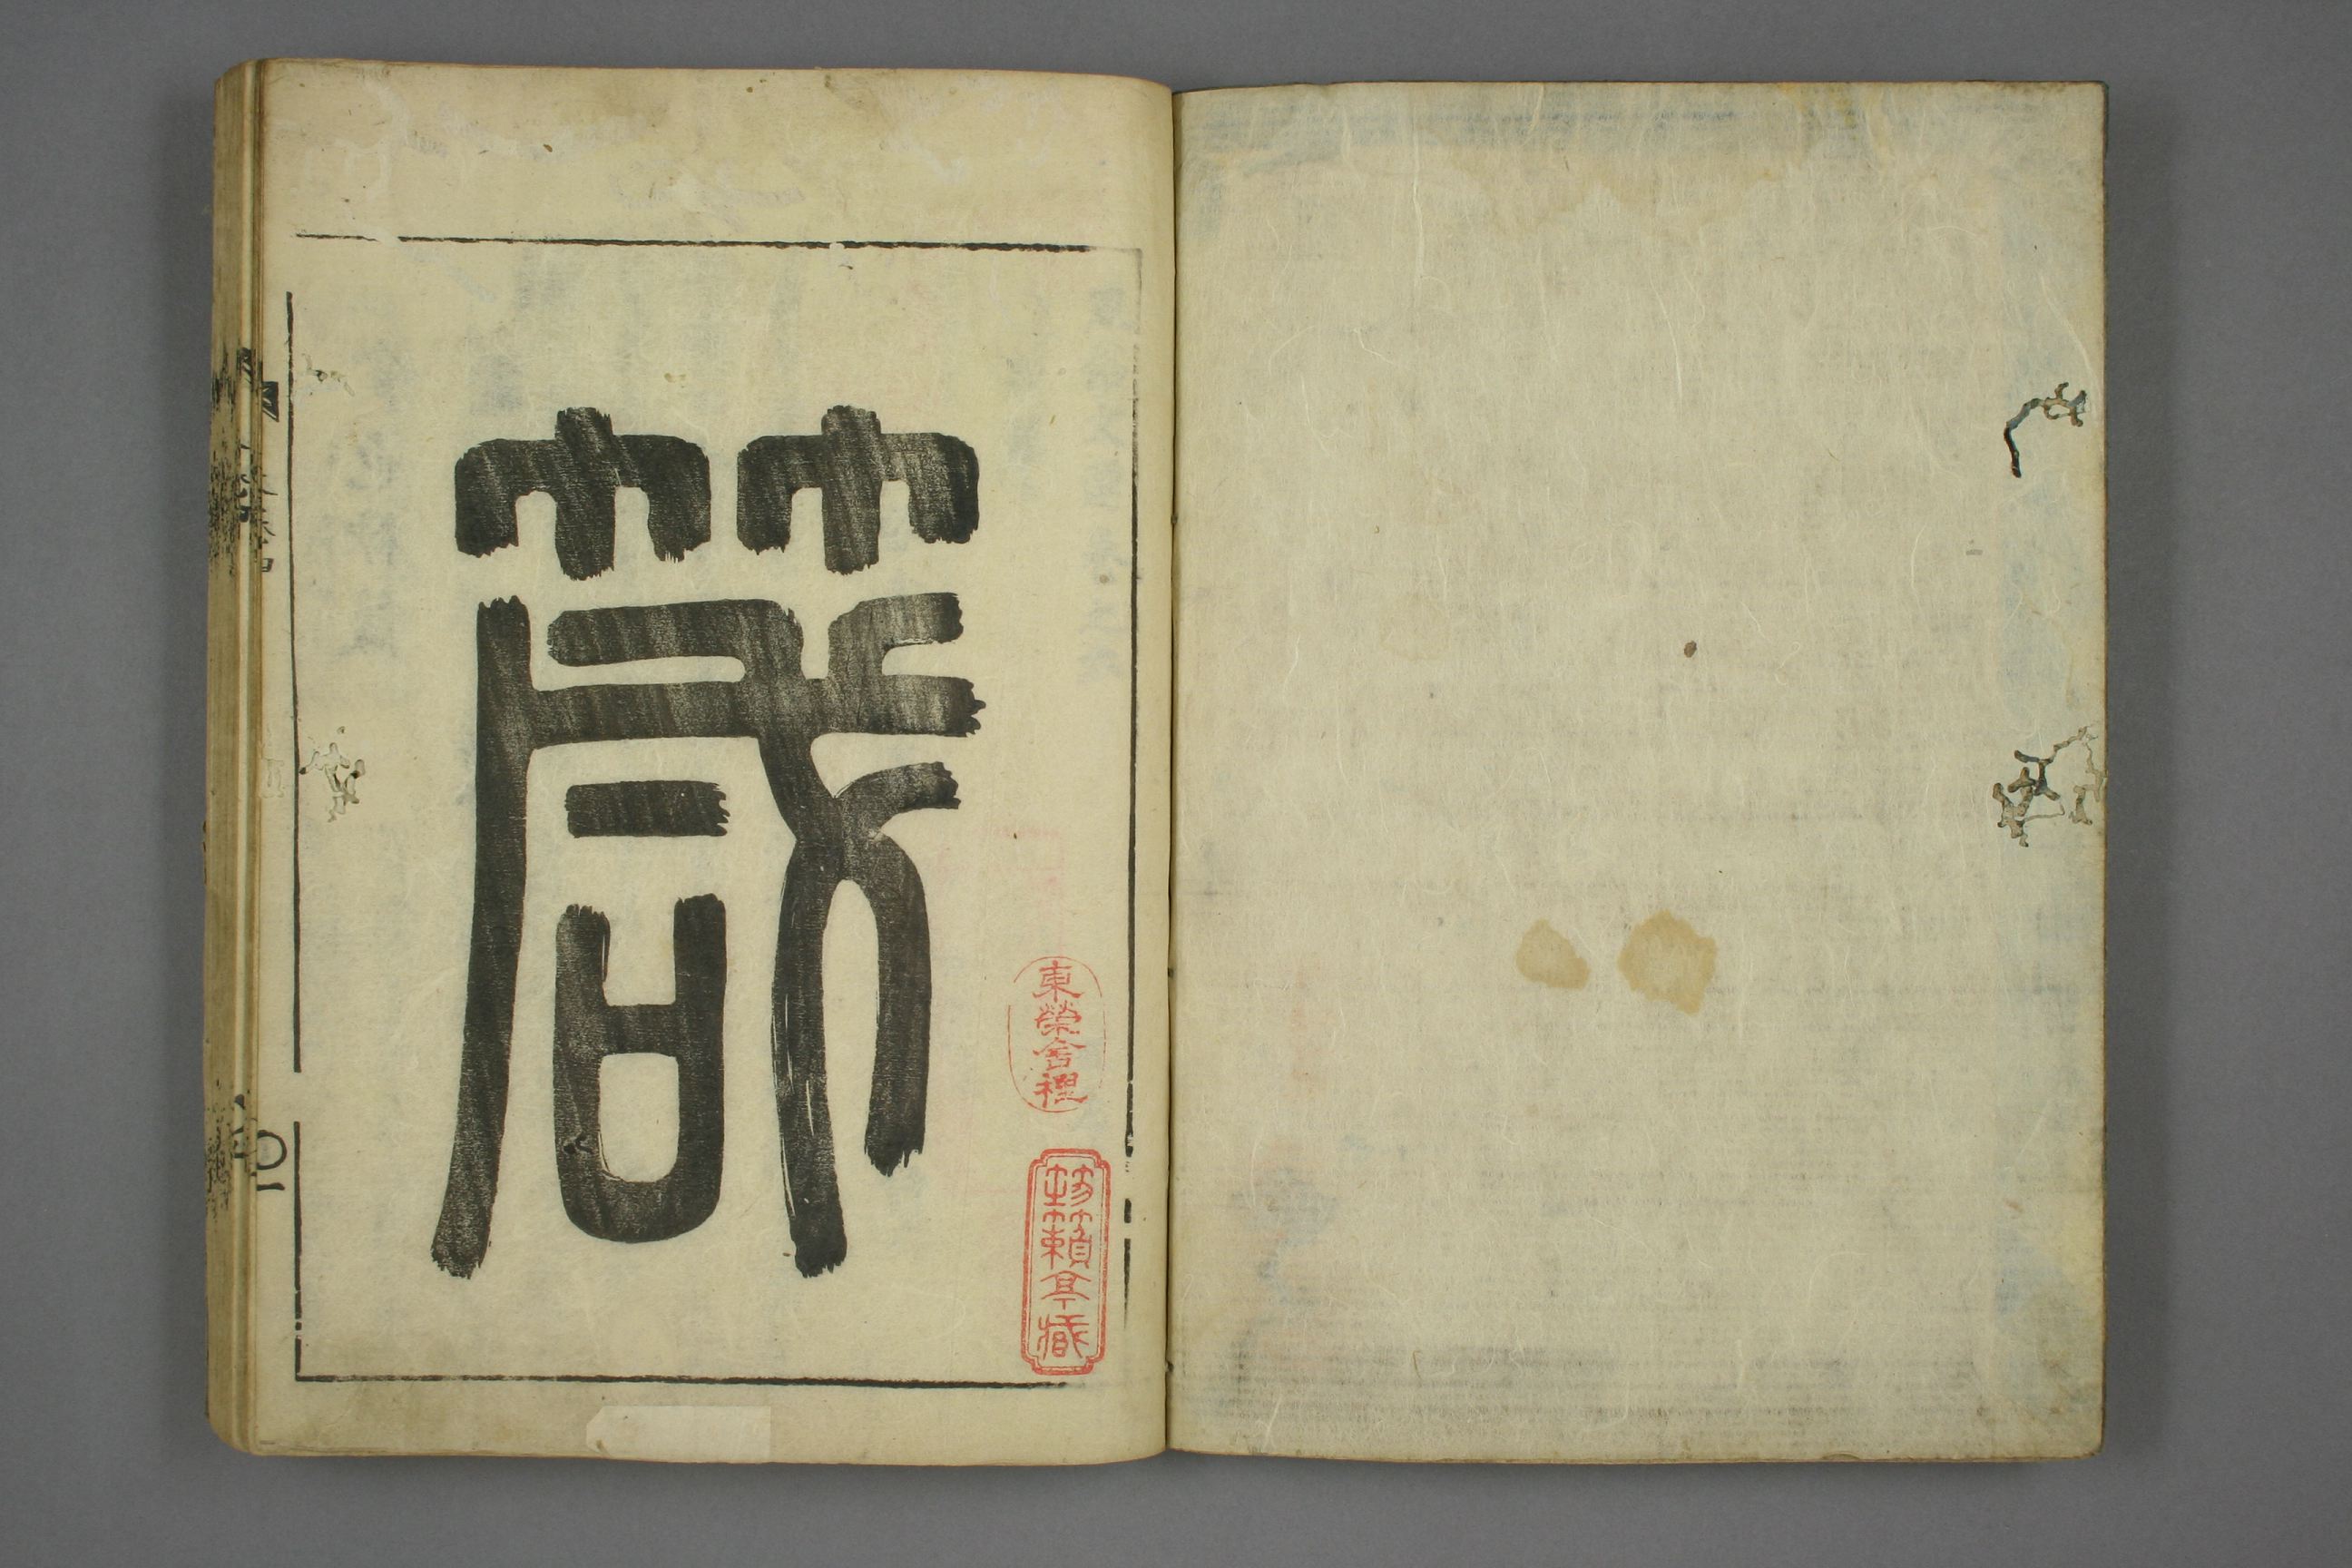 東榮舍裡
筠籟亭藏
箴